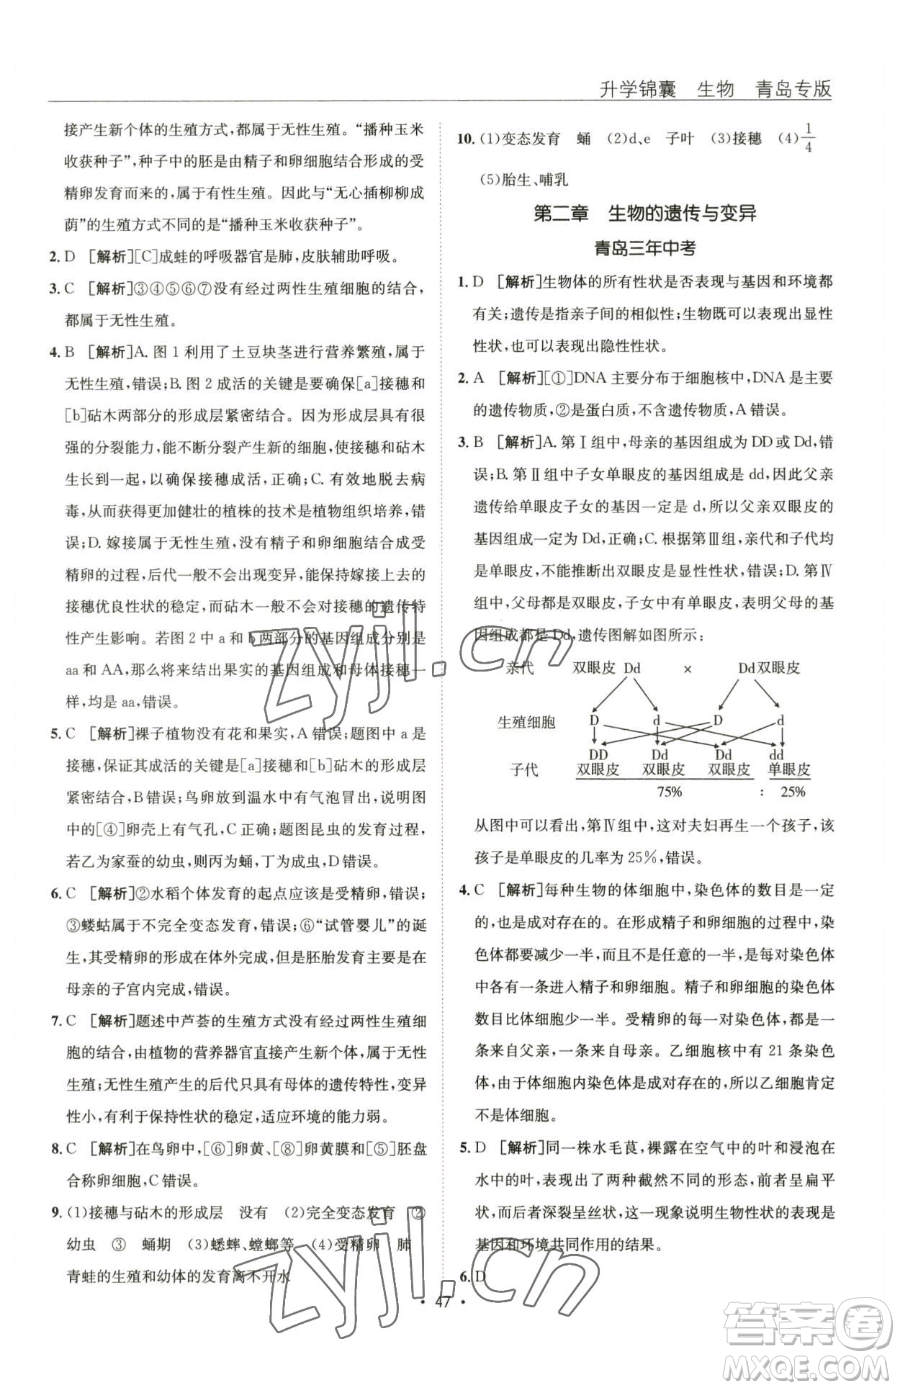 升学锦囊 生物 青岛专版
接产生新个体的生殖方式,都属于无性生殖。“播种玉米
收获种子”,种子中的胚是由精子和卵细胞形成的受精
卵发育而来的,属于有性生殖。因此与“无心插柳柳成
荫”的生殖方式不同的是“播种玉米收获种子”。
2. D [解析][C]成蛙的呼吸器官是肺,皮肤辅助呼吸。
3. C [解析]③④⑤⑥⑦没有经过两性生殖细胞的结合,
都属于无性生殖。
4. B [解析]A. 图 1 利用了土豆块茎进行营养繁殖,属于
无性生殖,错误;B. 图 2 成活的关键是要确保[a]接穗和
[b]砧木两部分的形成层紧密结合。因为形成层具有很
强的分裂能力,能不断分裂产生新的细胞,使接穗和砧木
生长到一起,以确保接穗成活,正确;C. 有效地脱去病
毒,从而获得更加健壮的植株的技术是植物组织培养,错
误;D. 嫁接属于无性生殖,没有精子和卵细胞结合成受
精卵的过程,后代一般不会出现变异,因而能保持嫁接植
物优良性状的稳定,而砧木一般不会对接穗的遗传特
性产生影响。若图 2 中 a 和 b 两部分的基因组成分别是
aa 和 AA,那么将来结出果实的基因组成和母体接穗一
样,均是 aa,错误。
5. C [解析]裸子植物没有花和果实,A 错误;题图中 a 是
接穗,保证其成活的关键是[a]接穗和[b]砧木的形成层
紧密结合,B 错误;鸟卵放到温水中有气泡冒出,说明图
中[④]卵壳上有气孔,C 正确;题图昆虫的发育过程,
若乙为家蚕的幼虫,则丙为蛹,丁为成虫,D 错误。
6. C [解析]②水稻个体发育的起点应该是受精卵,错误;
③蝼蛄属于不完全变态发育,错误;⑥“试管婴儿”的诞
生,受精卵的形成在体外完成,但是胚胎发育的过程是在
母亲的子宫内完成,错误。
7. C [解析]题述中芦荟的生殖方式没有经过两性生殖细
胞的结合,由植物的营养器官直接产生新个体,属于无性
生殖;无性生殖产生的后代只具有母体的遗传特性,变异
性小,有利于保持性状的稳定,适应环境的能力弱。
8. C [解析]在鸟卵中,[⑥]卵黄、[⑧]卵黄膜和[⑤]胚盘
合称为卵细胞,C 错误。
9. (1)接穗与砧木的形成层 没有 (2)完全变态发育 ②
幼虫 ③ 蛹期 (3)蟋蟀、螳螂等 (4)受精卵 肺
青蛙的生殖和幼体的发育离不开水
10. (1)变态发育 蛹 (2)d、e 子叶 (3)接穗 (4)1/4
(5)胎生、哺乳
第二章 生物的遗传与变异
青岛三年中考
1. D [解析]生物体的所有性状是否表现与基因和环境都
有关;遗传是指亲子间的相似性;生物既可以表现出显性
性状,也可以表现出隐性性状。
2. A [解析][①]DNA 主要分布于细胞核中,DNA 是主要
的遗传物质,②是蛋白质,不是主要的遗传物质,A 错误。
3. B [解析]A. 第Ⅰ组中,母亲的基因组成为 DD 或 Dd,错
误;B. 第Ⅱ组中子女单眼皮的基因组成是 dd,因此父亲
遗传给单眼皮子女的基因是 d,所以父亲双眼皮的基因
组成为 Dd,正确;C. 根据第Ⅲ组中,亲代和子代均是
单眼皮,不能推断出双眼皮是显性性状,错误;D. 第Ⅳ
组中,父母都是双眼皮,子女中有单眼皮,表明父母的基
因组成都是 Dd,遗传图解如图所示:
亲代 双眼皮 Dd × Dd双眼皮
生殖细胞 D d D d
DD Dd Dd dd
子代 双眼皮 双眼皮 双眼皮 单眼皮
75% : 25%
从图中可以看出,第Ⅳ组中,这对夫妇再生一个孩子,该
孩子是单眼皮的几率为 25%,错误。
4. C [解析]每种生物的体细胞中,染色体的数目是一定
的,是成对存在的。在形成精子和卵细胞的过程中,染色
体都要减少一半,不是任意的一半,是每对染色体
中的一条分别进入精子和卵细胞中。生殖细胞的染色体
数目比体细胞少一半。受精卵中的每一对染色体,都是
一条来自父亲,一条来自母亲。乙细胞中有 21 条染色
体,染色体不能成对存在(或不是偶数),所以乙细胞肯定
不是体细胞。
5. D [解析]同一株水毛茛,裸露在空气中的叶和浸泡在
水中的叶,表现出了两种截然不同的形态,前者呈扁平
状,后者深裂呈丝状,这一现象说明生物性状的表现是
基因和环境共同作用的结果。
6. D
• 47 •
zyjl.cn
zyjl.cn
答案圈
MXQE.COM